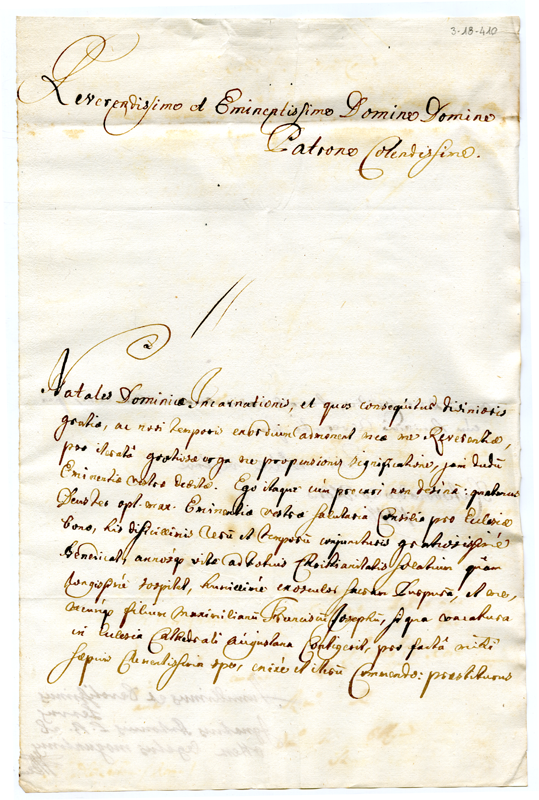 3-13-410
Reverendissime et Eminentissime Domine Domine
Patrone Colendissime.
Natales Dominicæ Incarnationis, et quos consequitur divinioris
gratia, ac novi temporis exordium admonent meæ me Reverentiæ,
pro iterata gratiosæ erga me propensionis significatione, jam dudum
Eminentiæ vestræ debitæ. Ego itaque cùm precari non desinà, quatenus
Deus ter opt. max. Eminentiæ vestræ salutaria Consilia pro Ecclesiæ
bono, his difficilimis rerum et temporum conjuncturis gratiosissimè
benedicat, annosq vitæ ad totius Christianitatis solatium quàm
longissimè sospitet, humillimè exosculor sacram Purpuram, et me,
meumq filium Maximilianum Franciscum Josephum, si qua vacatura
in Ecclesia Cathedrali Augustana Contigerit, pro facta mihi
sæpius Clementissima spe, enixè et iterum Commendo: præstiturus